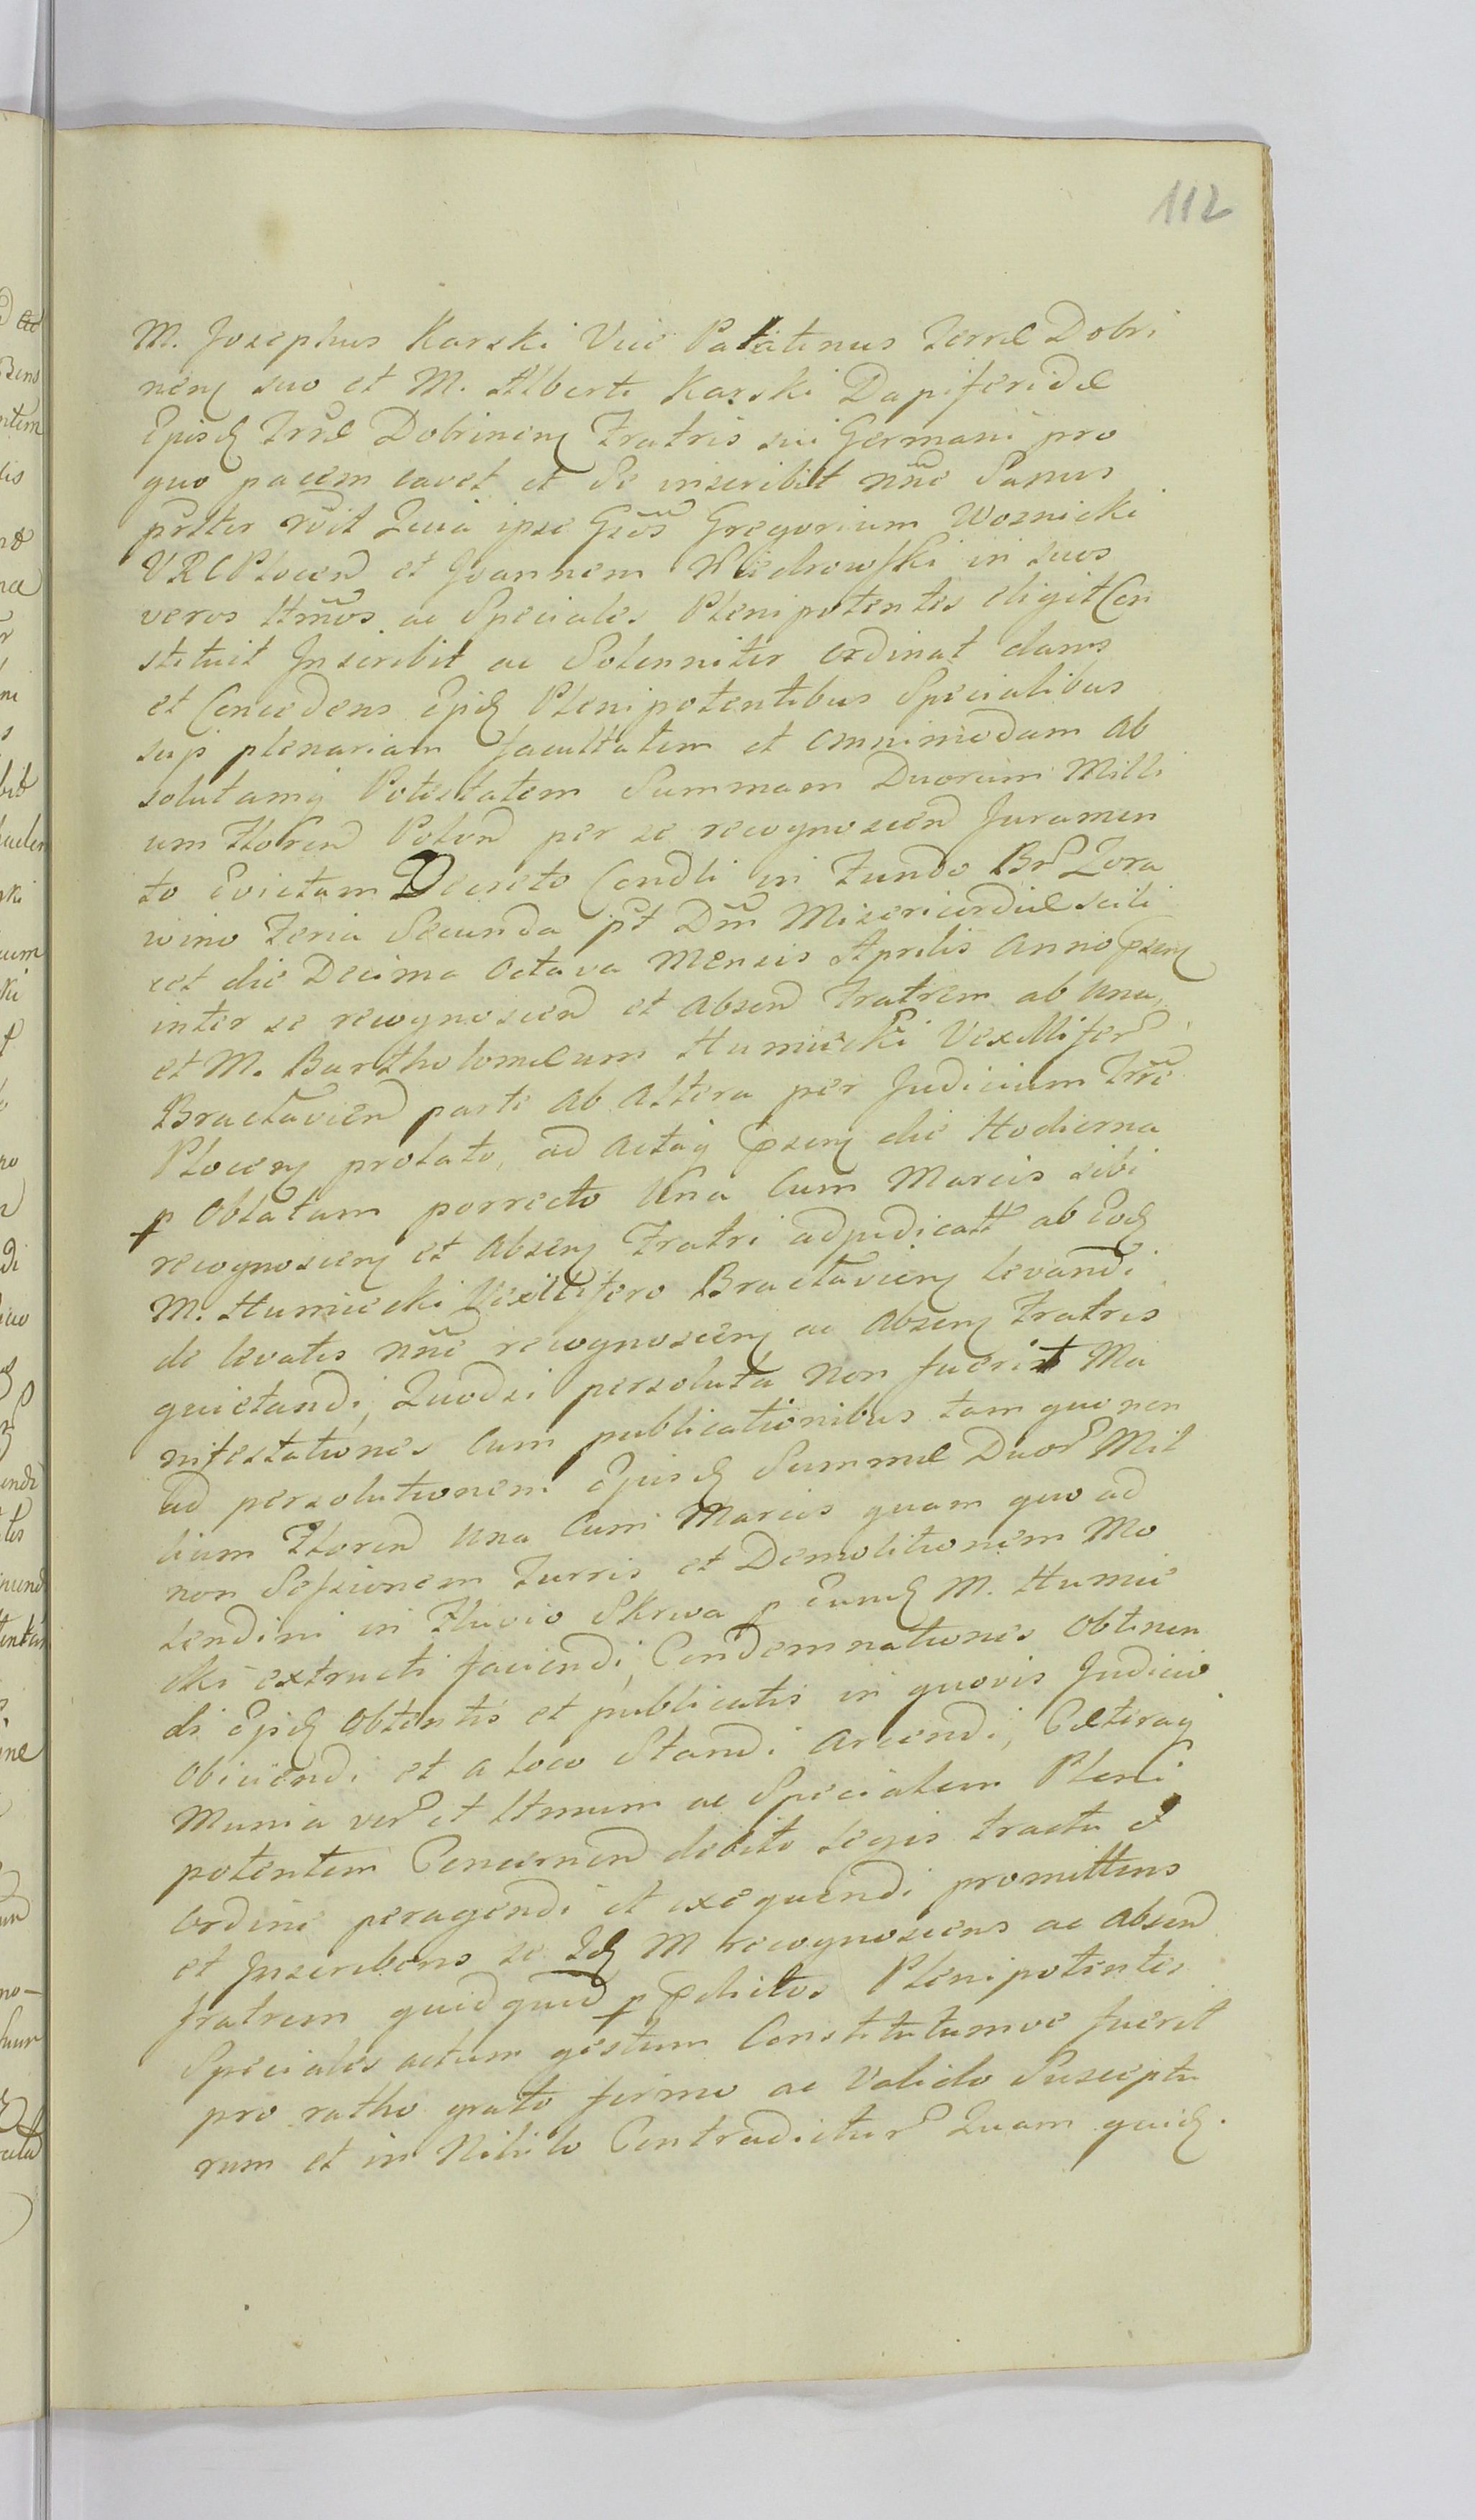 112
M. Josephus Karski Vice Palatinus Terræ Dobri
nen suo et M. Alberti Karski Dapiferidæ
Ejusd Trræ Dobrinen Fratris sui Germani pro
quo pacem cavet et se inscribit nñe Sanus
prtter rõit Quia ipse Gsõs Gregorium Woznicki
VRC Plocen et Joannem in suos
veros lttmõs ac Speciales Plenipotentes eligit Con
stituit Inscribit ac Solenniter ordinat dans
et Concedens Epid Plenipotentibus Specialibus
sup plenariam facultatem et omnimodam ab
solutamq Potestatem Summam Duorum Milli
um Floren Polon per se recognoscen Juramen
to Evictam Decreto Condli in Fundo Br Zora
wino Feria Secunda pt Dm Misericordiæ scili
cet die Decima Octava Mensis Aprilis Anno psen
inter se recognoscen et absen Fratrem ab una,
et M. Bartholomæum Humiecki Vexillifer
Braclavien parte ab altera per Judicium Trrẽ
Plocen prolato, ad actaq psen die Hodierna
p Oblatam porrecto Una Cum Marcis sibi
recognoscen et absen Fratri adjudicatt ab Eod
M. Humiecki Vexillifero Braclavien levandi
de levatis nñe recognoscen ac absen Fratris
quietandi, Quodsi persoluta non fuerit Ma
nifestationes Cum publicationibus tam quo non
ad persolutionem Ejusd Summæ Duor Mil
lium Floren Una Cum Marcis quam quo ad
non Sessionem Turris et Demolitionem Mo
lendini in Fluvio Skrwa p Eund M. Humie
cki extructi faciendi, Condemnationes Obtinen
di Epid Obtentis et publicatis in quovis Judicio
Obiiciendi et a loco Standi arcendi, Cæteraq
Munia ver et lttmum ac Specialem Pleni
potentem Concernen debito legis tractu et
Ordine peragendi et exequendi promittens
et Inscribens se Id M recognoscens ac absen
fratrem quidquid p Plenipotentes
Speciales actum gestum Constitutumve fuerit
pro ratho grato firmo ac Valido Susceptu
rum et in Nihilo Contradictur Quam quid.